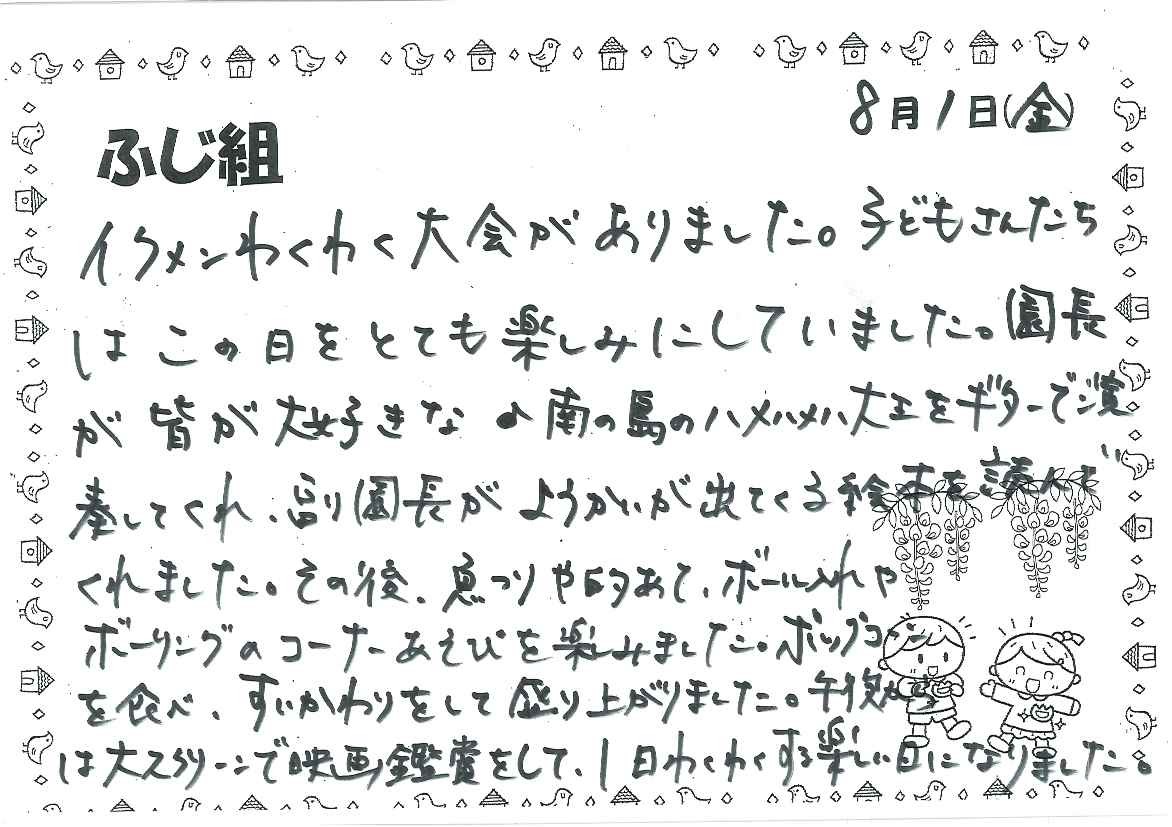 8月1日(金)
ふじ組
イクメンわくわく大会がありました。子どもさんたち
はこの日をとても楽しみにしていました。園長
が皆が大好きな♪南の島のハメハメハ大王をギターでご演
奏してくれ、副園長がようかいが出てくる絵本を読んで
くれました。その後、魚つりや的あて、ボール入れや
ボーリングのコーナーあそびを楽しみました。ポップコーン
を食べ、すいかわりをして盛り上がりました。午後から
は大スクリーンで映画鑑賞をして、1日わくわくする楽しい日になりました。